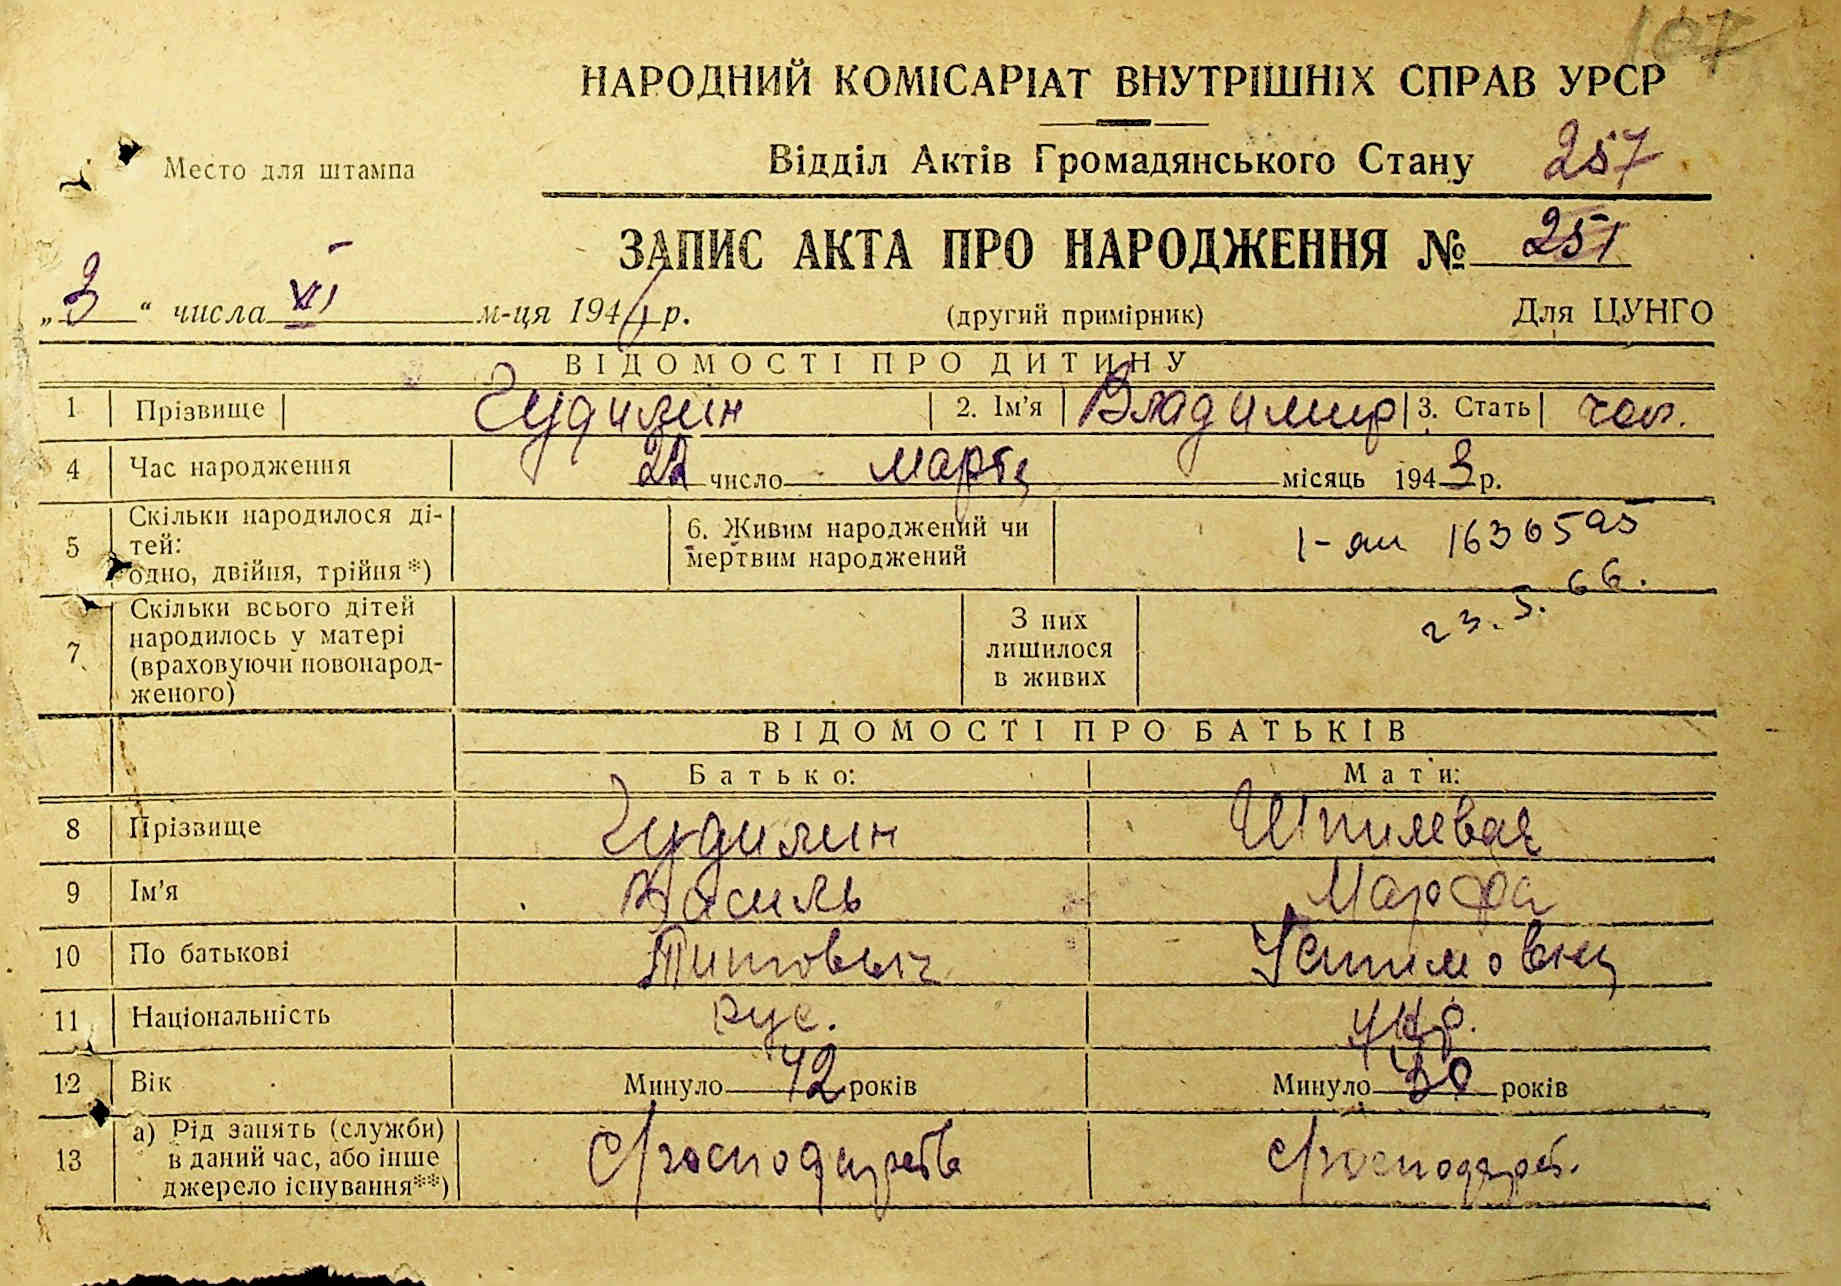 107
НАРОДНИЙ КОМІСАРІАТ ВНУТРІШНІХ СПРАВ УРСР
Место для штампа
Відділ Актів Громадянського Стану 257
ЗАПИС АКТА ПРО НАРОДЖЕННЯ № 251
„3“ числа VII м-ця 1944 р. (другий примірник) Для ЦУНГО
ВІДОМОСТІ ПРО ДИТИНУ
1 Прізвище Чудилин 2. Ім'я Владимир 3. Стать чол.
4 Час народження 22 число марта місяць 1943 р.
5 Скільки народилося ді-
тей:
одно, двійня, трійня*)
6. Живим народжений чи
мертвим народжений
1-ян 1636595
23.5.66.
7 Скільки всього дітей
народилось у матері
(враховуючи новонарод-
женого)
З них
лишилося
в живих
ВІДОМОСТІ ПРО БАТЬКІВ
Батько: Мати:
8 Прізвище Чудилин Шпилевая
9 Ім'я Василь Марфа
10 По батькові Титович Устимовна
11 Національність рус. укр.
12 Вік Минуло 42 років Минуло 30 років
13 а) Рід занять (служби)
в даний час, або інше
джерело існування**)
с/господарств с/господарст.